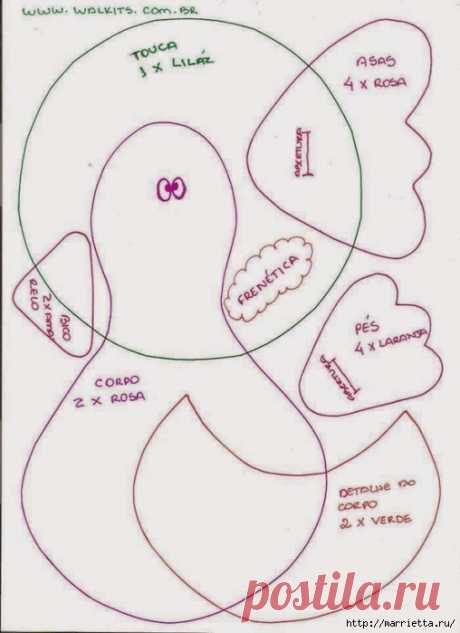 WWW.WALKITS.COM.BR
TOUCA
1 X LILÁZ
ASAS
4 X ROSA
ABERTURA
FRENÉTICA
BICO
2 X AMA
RELO
PÉS
4 X LARANJA
ABERTURA
CORPO
2 X ROSA
DETALHE DO
CORPO
2 X VERDE
postila.ru
http://marrietta.ru/